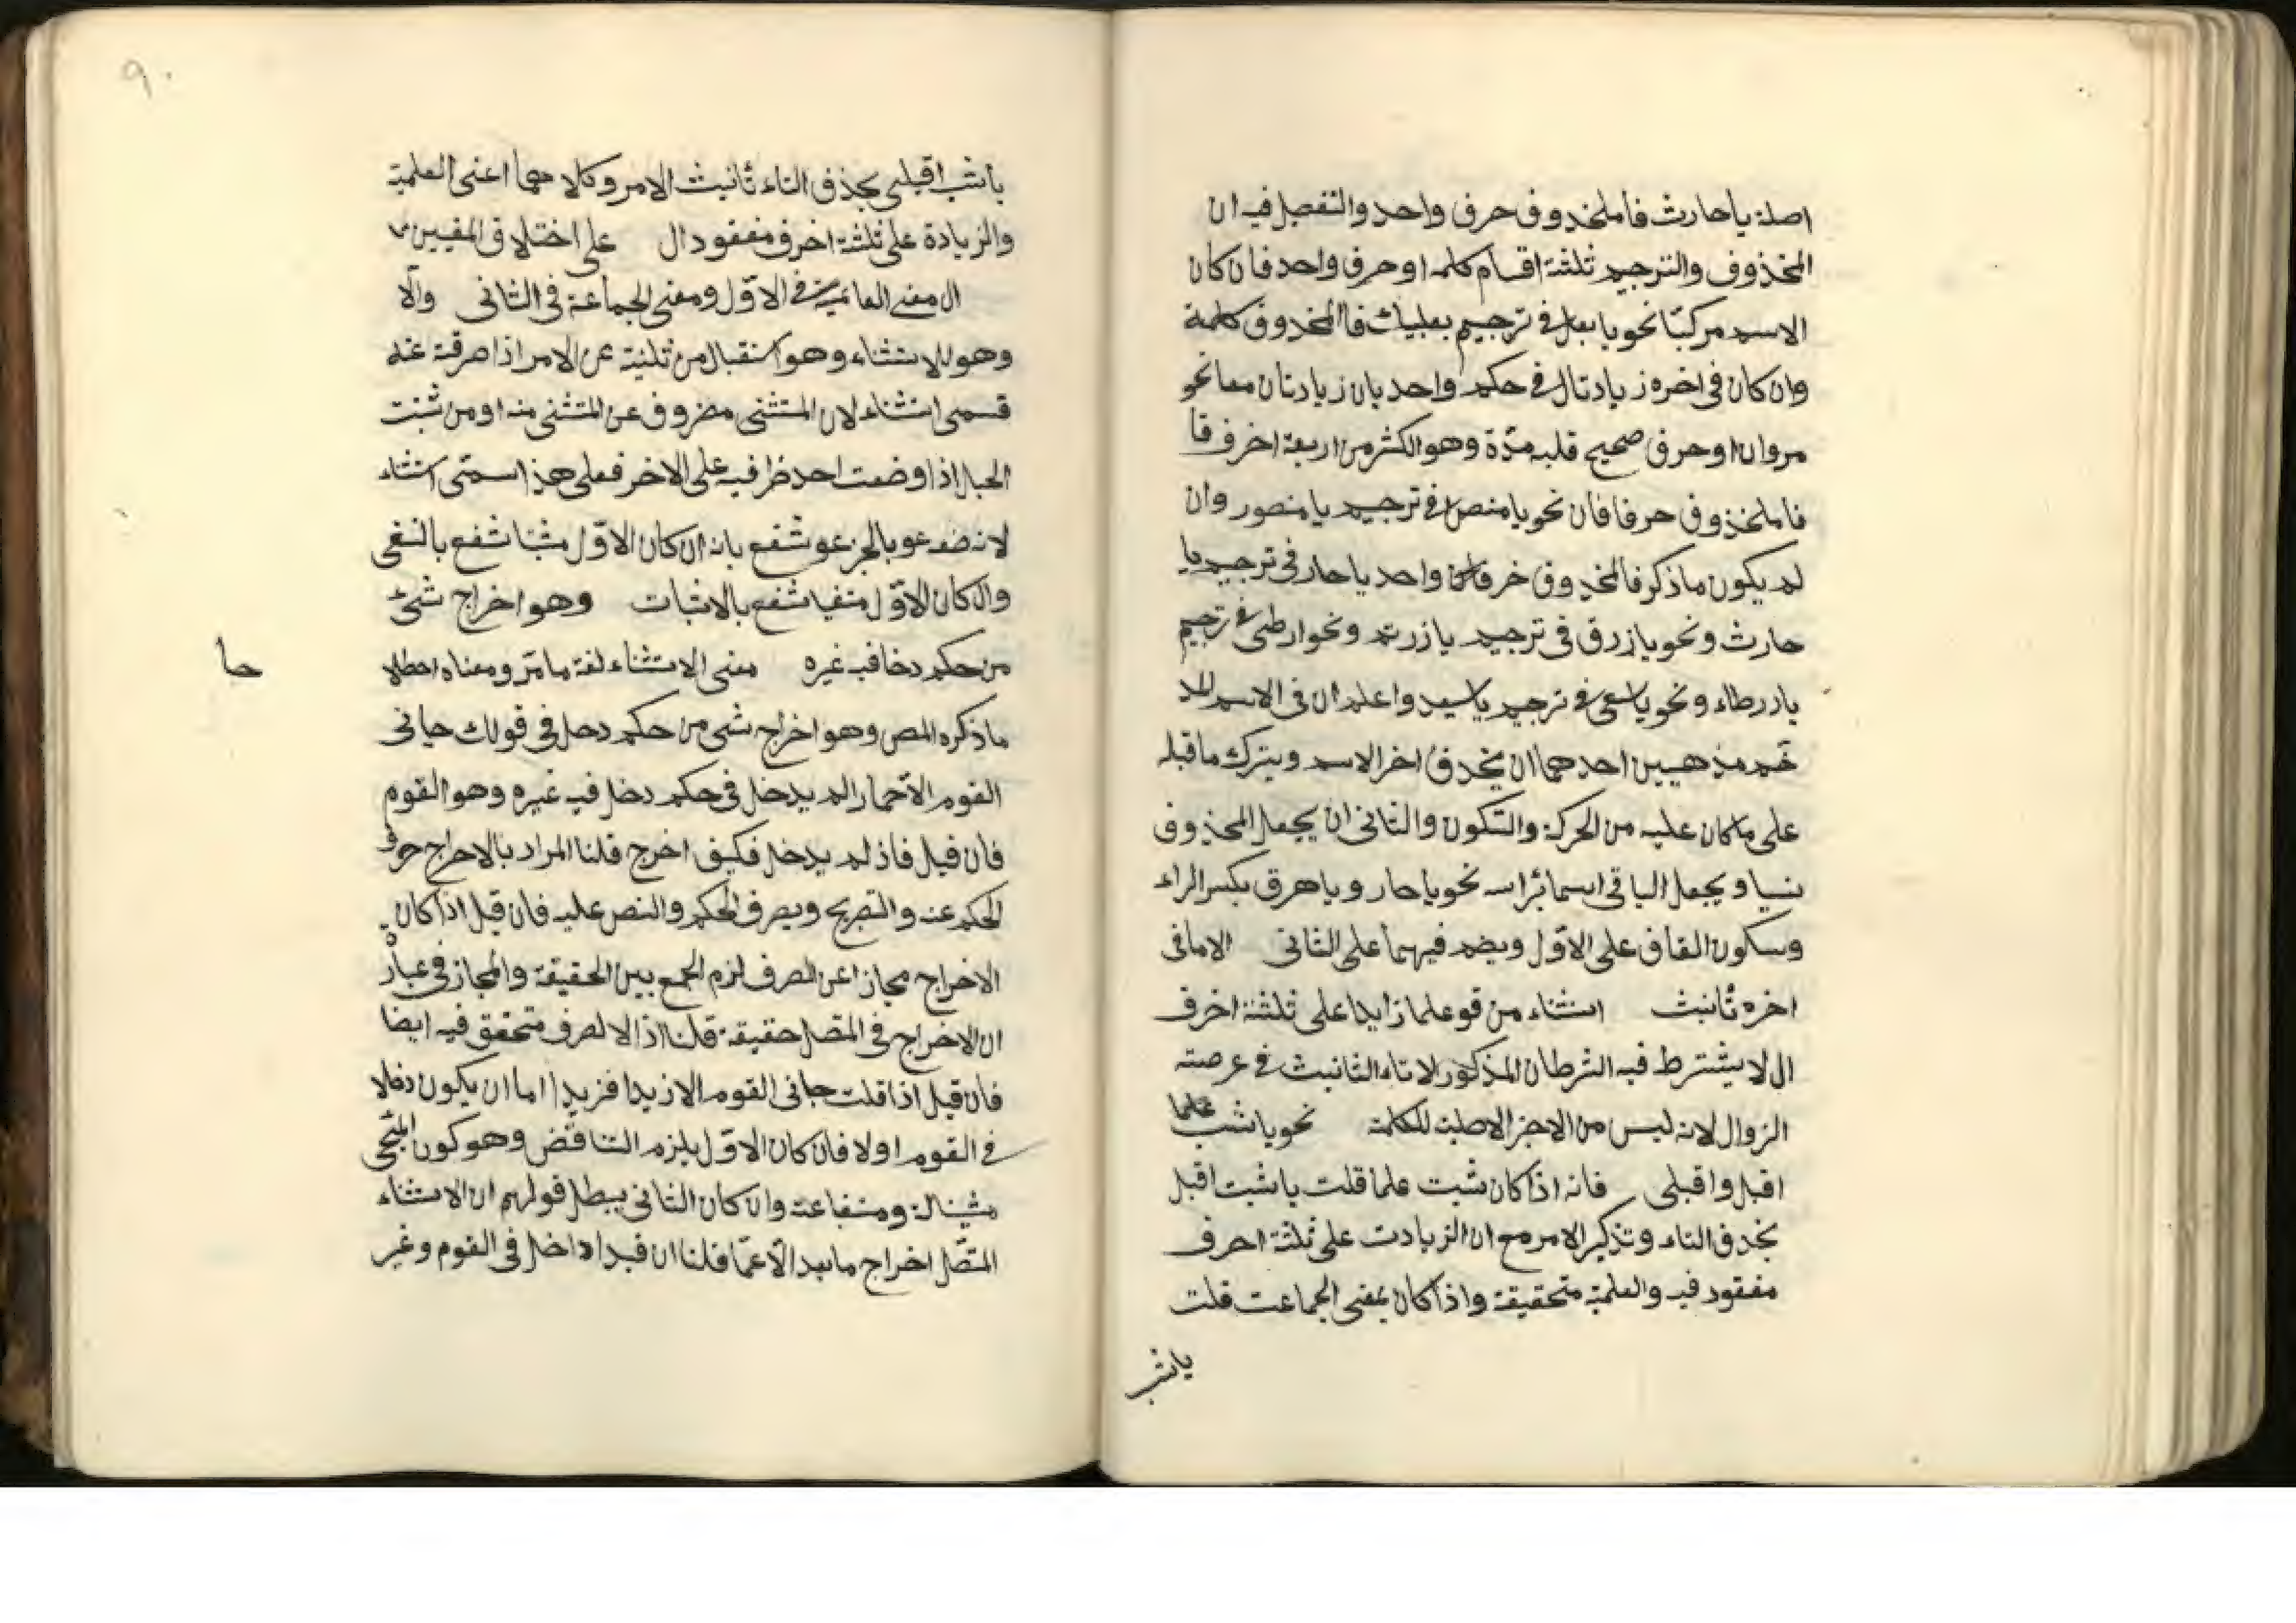 اصله ياحارث فاملخدوف حرف واحد والتفصيل فيه ان
المخذوف والترجيم ثلثة اقسام كلمه اوحرف واحد فان كان
الاسم مركبّا نحو يابعل في ترجيم بعلبك فاالمخدوف كلمة
وان كان فى اخره زيادتال فى حكم واحد بان زيادتان معا نحو
مروان اوحرف صحيح قلبه مدّة وهو الكثر من اربعة اخرف فا
فاملخذوف حرفا فان نحو يا منص في ترجيم يا منصور وان
لم يكون ماذكر فالمخدوف خرفا واحد ياحار فى ترجيم يا
حارث ونحو يازرق فى ترجيم يازرقه ونحو ارطى في ترجيم
يادرطاء ونحو ياسعى في ترجيم ياسيد واعلم ان فى الاسم
خم مذهبين احدهما ان يخدف اخر الاسم ويترك ماقبله
على ماكان عليه من الحركة والسّكون والثانى ان يجعل المحذوف
نسيا ويجعل الباقى اسما برٔاسه نحو ياحار وياهرق بكسر الراء
وسكون القاف على الاوّل ويضم فيهما على الثانى الامافى
اخره تٔانيث استثناء من قو علما زايدا على ثلثة اخرف
ال لايشترط فيه الشرطان المذكور لاتاء الثانيث فى عرصته
الزوال لانه ليس من الاجز الاصلية للكلمة نحو ياشب علما
اقبل واقبلى فانه اذا كان شبت علما قلت ياشبت اقبل
بخدف التاء وتذكير الامر مع ان الزيادت على ثلثة احرف
مفقود فيه والعلمية متحقيقة واذا كان بمعنى الجماعت قلت
ياشب
٩٠
ياشب اقبلى بحذف التاء تٔانيث الامر وكلاهما اعنى العلمية
والزيادة على ثلثة اخرف مفقود ال على اختلاف المقيين
ال معنى العالمية في الاوّل ومعنى الجماعة فى الثانى والّا
وهو للاستثناء وهو استقبال من ثلنية عن الامر اذا صرفته عنه
قسمى استثناء لان المتثنى مصروف عن المتثنى منه اومن ثنيت
الحبل اذا وضعت احد ظرافيه على الاخر فعلى هذا سمّى استثناء
لانه ضد عو بالجز عو شفع بانه ان كان الاوّل مثبتا شفع بالنفى
وان كان الاوّل منفيا شفع بالاثبات وهو اخراج شئ
من حكم دخل فيه غيره معنى الاستثناء لغة مامّر ومعناه اصطلا
حا
ماذكره المص وهو اخراج شى من حكم دحل فى قولك جانى
القوم الاّحمار الم يدخل فى حكم دخل فيه غيره وهو القوم
فان قيل فاذ لم يدخل فكيف اخرج قلنا المراد بالاحراج حرف
الحكم عنه والتصريح وبصرف الحكم والنص عليه فان قيل اذا كان
الاخراج مجازا عن الصرف لزم الجمع بين الحقيقة والمجاز فى عبار
ان الاخراج فى المتصل حقيقة قلنا اذ الالصرف متحقق فيه ايضا
فان قيل اذا قلت جانى القوم الازيدا فزيدا اما ان يكون دخلا
في القوم اولا فان كان الاوّل يلزم التناقض وهو كون المجى
مثبتاله ومنفاعنه وان كان الثانى يبطل قولهم ان الاستثناء
المتصّل اخراج مابعد الّا عمّا قلنا ان قيدا داخل فى القوم وغير